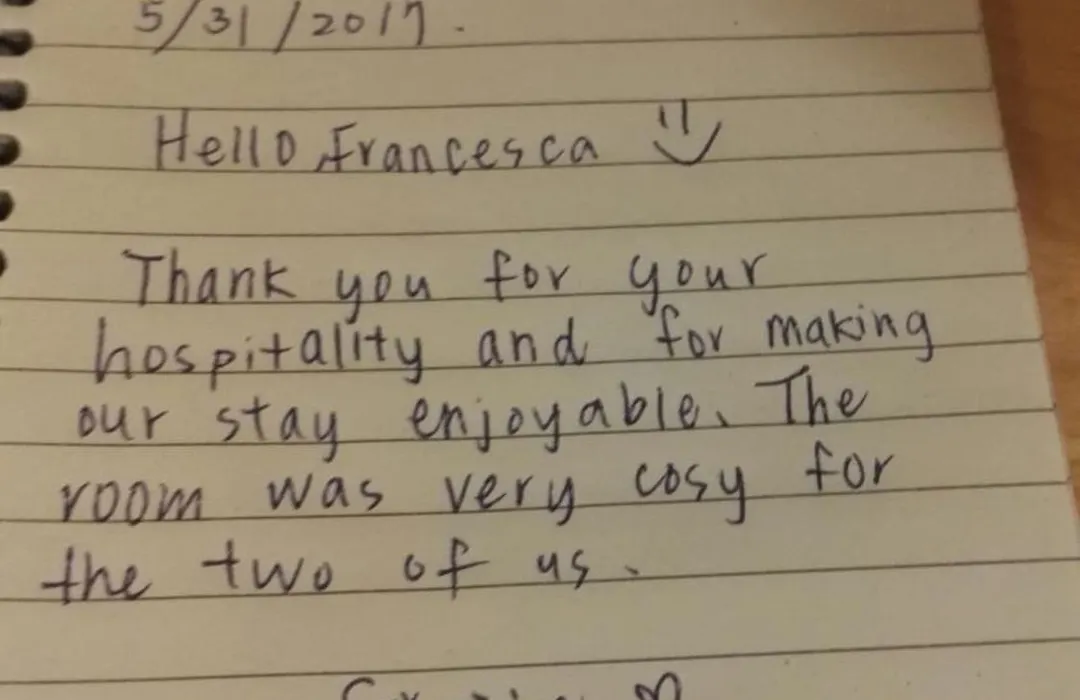 5/31/2017.
Hello Francesca
Thank you for your
hospitality and for making
our stay enjoyable. The
room was very cosy for
the two of us.